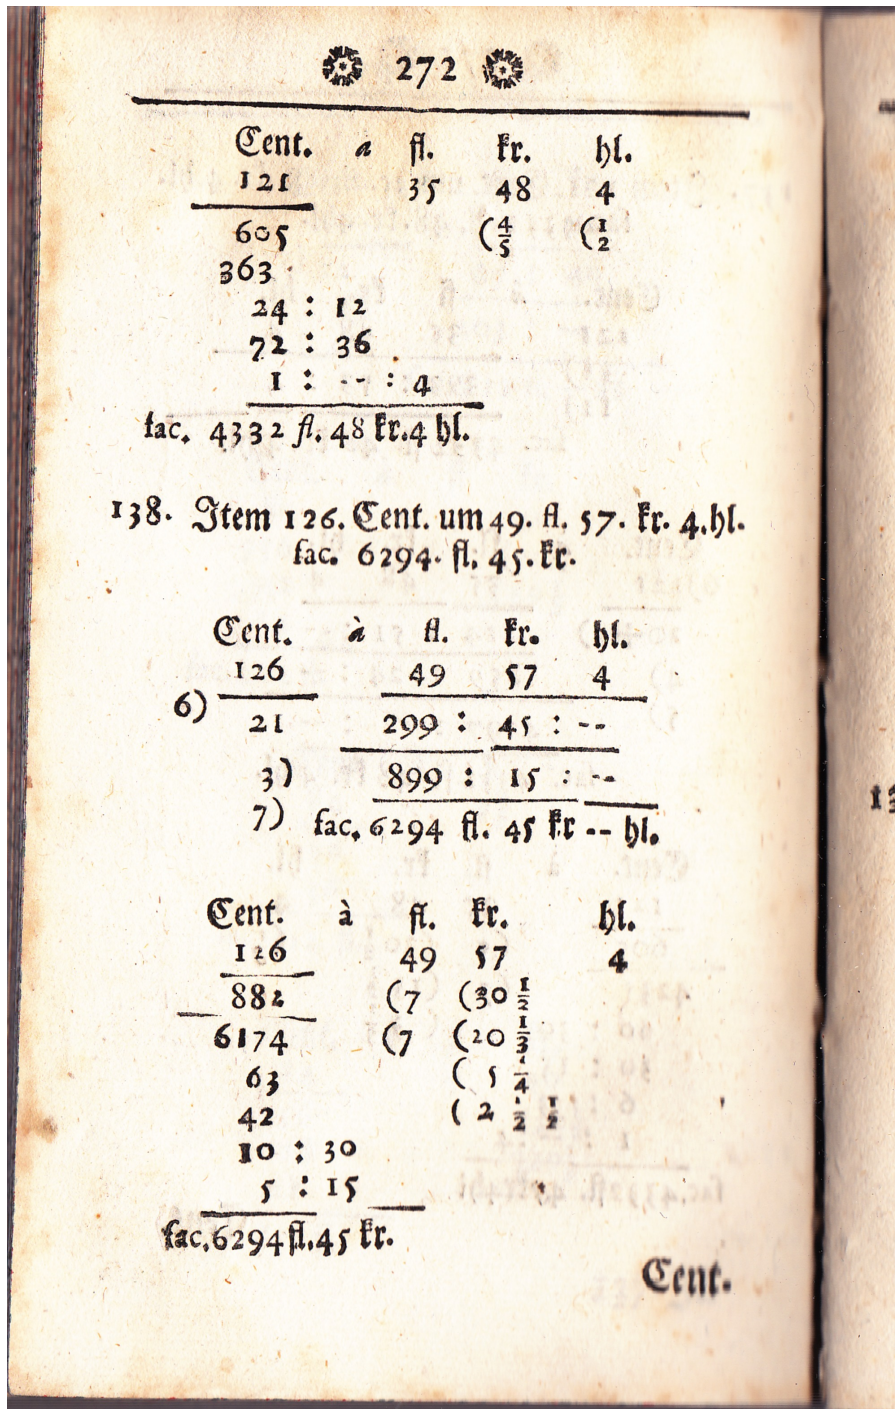 272
Cent. a fl. kr. hl.
121 35 48 4
605 (4/5 (1/2
363
24 : 12
72 : 36
1 : -- : 4
fac. 4332 fl. 48 kr. 4 hl.
138. Item 126. Cent. um 49. fl. 57. kr. 4. hl.
fac. 6294. fl. 45. kr.
Cent. à fl. kr. hl.
126 49 57 4
6) 21 299 : 45 : --
3) 899 : 15 : --
7) fac. 6294 fl. 45 kr -- hl.
Cent. à fl. kr. hl.
126 49 57 4
882 (7 (30 1/2
6174 (7 (20 1/3
63 ( 5 1/4
42 ( 2 1/2 1/2
10 : 30
5 : 15
fac. 6294 fl. 45 kr.
Cent.